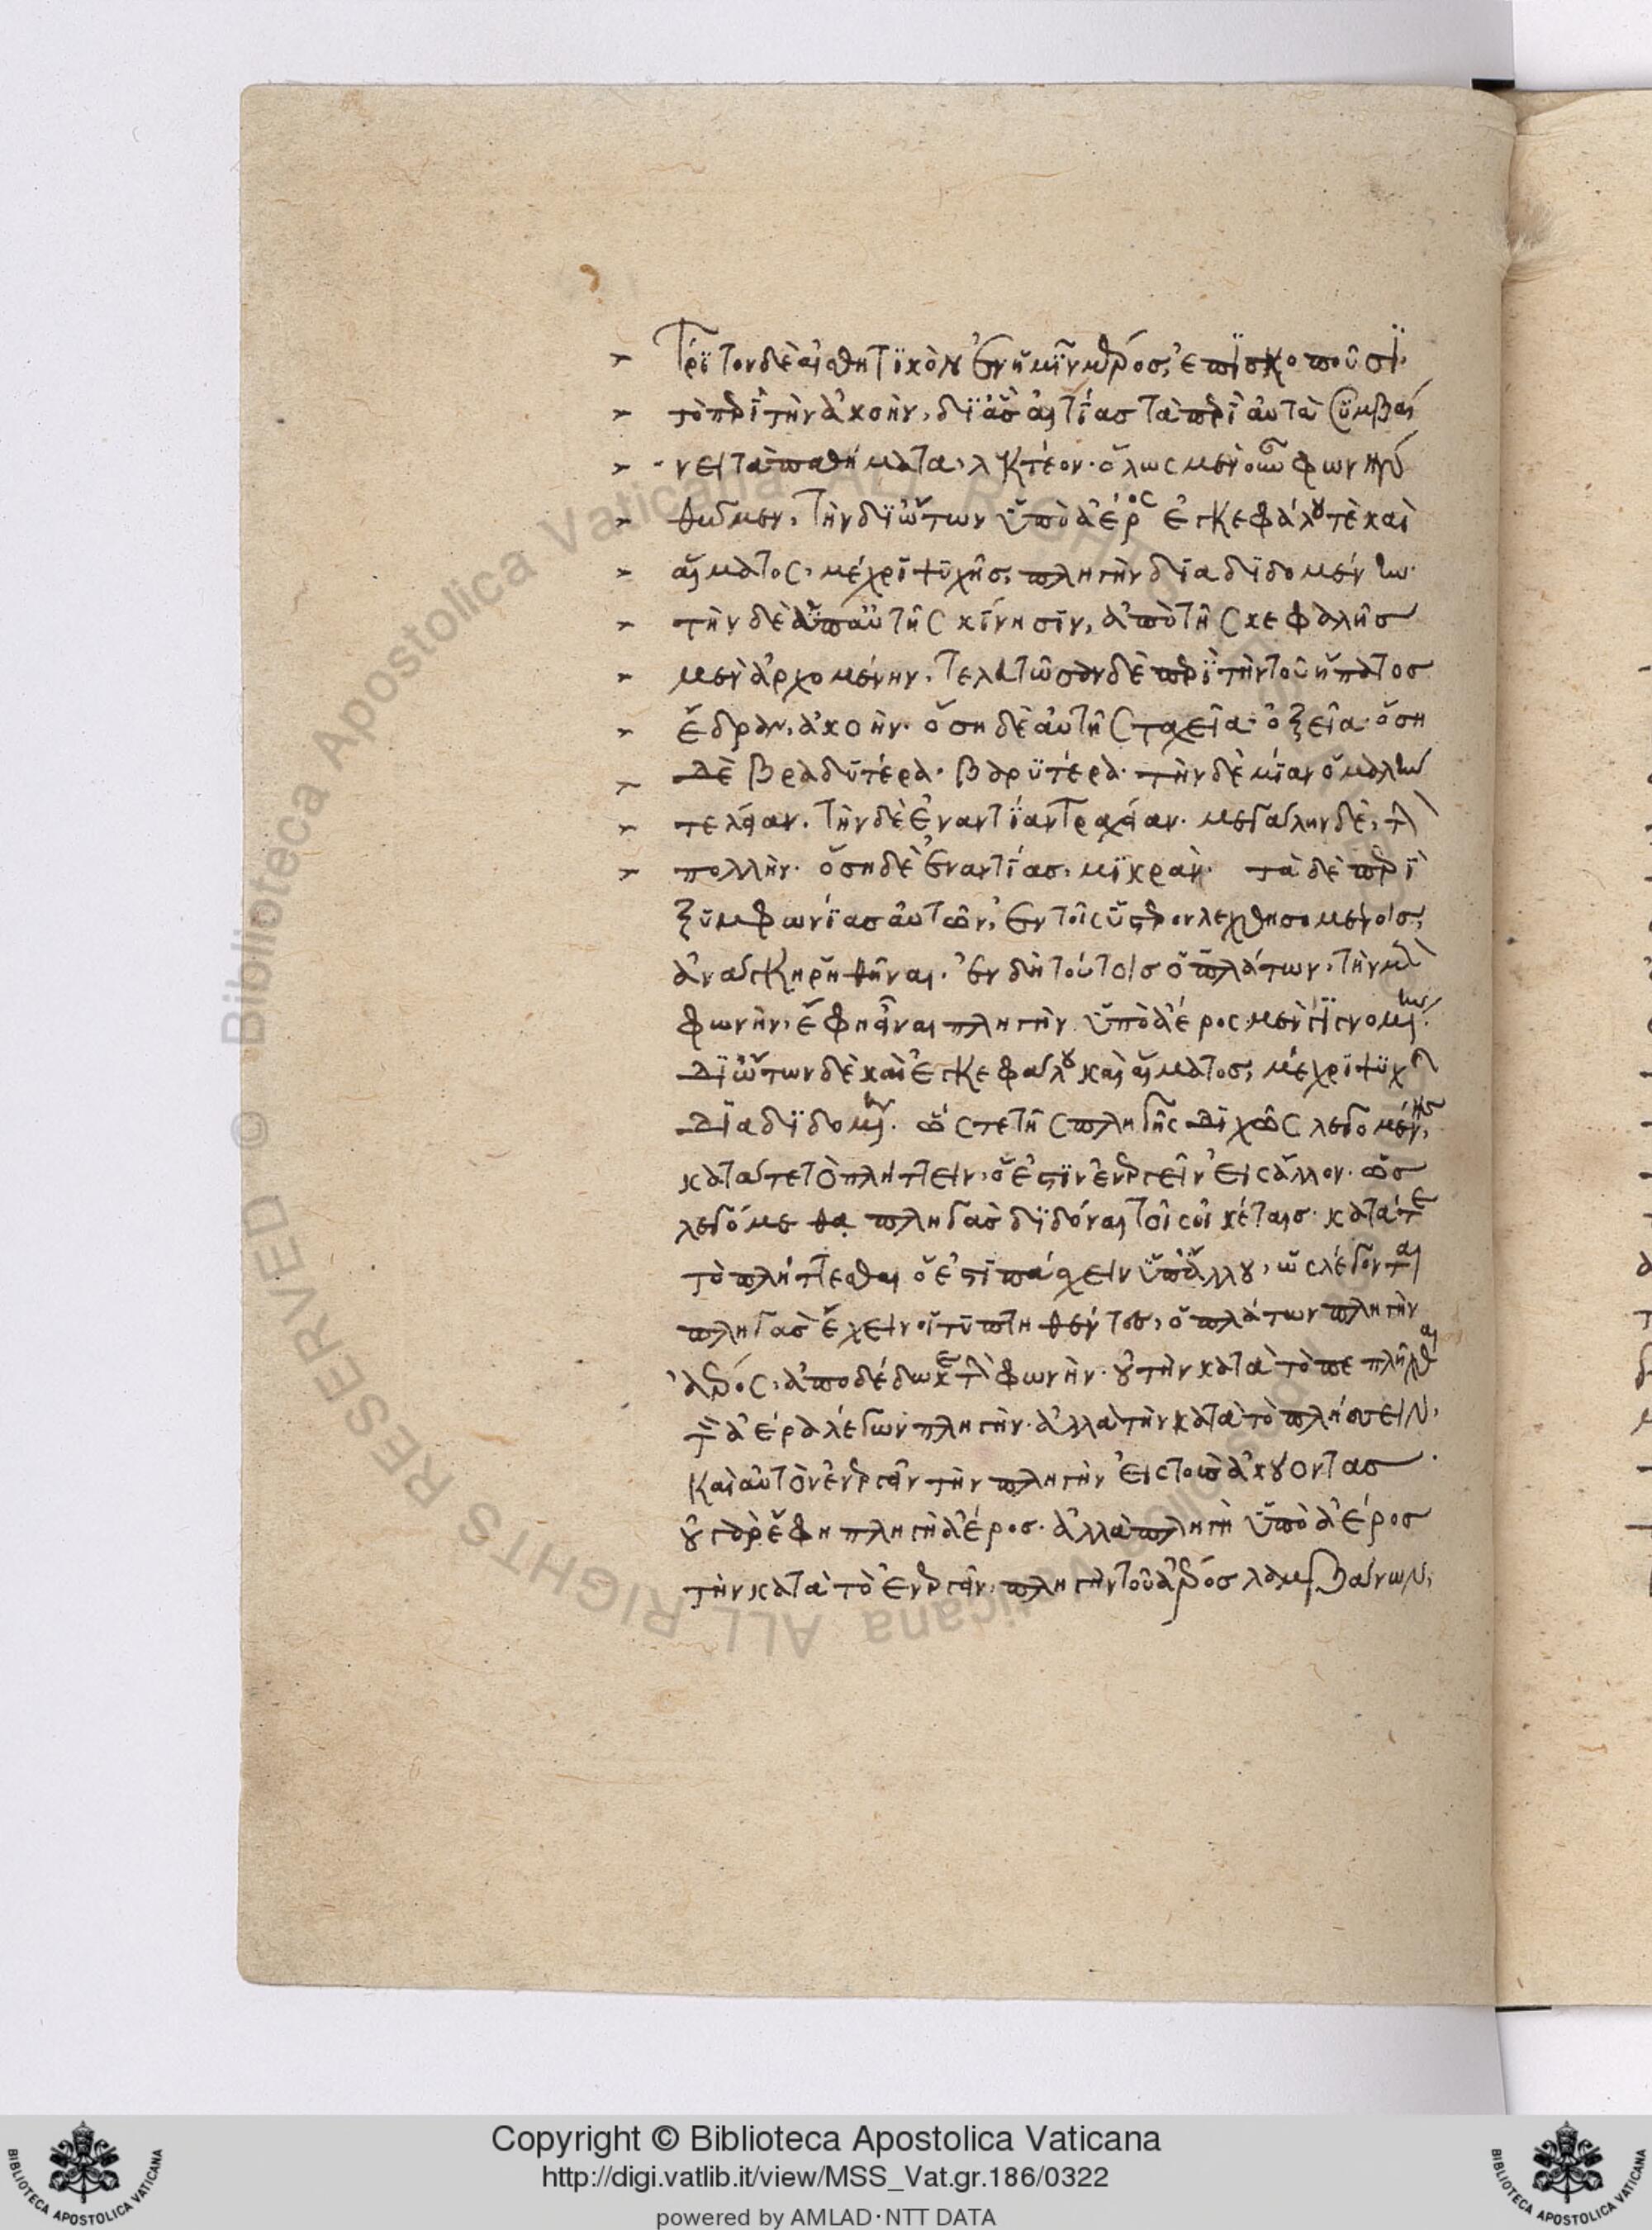 Τρίτον δὲ αἰσθητικὸν ἐν ἡμῖν μέρος, ἐπισκοποῦσι
τὸ περὶ τὴν ἀκοὴν, δι' ἃς αἰτίας τὰ περὶ αὐτὰ ξυμβαί
νει τὰ παθήματα, λεκτέον. ὅλως μὲν οὖν φωνὴν
θῶμεν, τὴν δι' ὤτων ὑπὸ ἀέρος ἐγκεφάλου τὲ καὶ
αἵματος, μέχρι ψυχῆς, πληγὴν διαδιδομένην.
τὴν δὲ ὑπ' αὐτῆς κίνησιν, ἀπὸ τῆς κεφαλῆς
μὲν ἀρχομένην, τελευτῶσαν δὲ περὶ τὴν τοῦ ἥπατος
ἕδραν, ἀκοήν. ὅση δὲ αὐτῆς ταχεῖα, ὀξεῖα. ὅση
δὲ βραδυτέρα, βαρυτέρα. τὴν δὲ μίαν ὁμαλὴν
τε λείαν. τὴν δὲ ἐναντίαν τραχεῖαν. μεγάλην δὲ, τὴν
πολλὴν. ὅση δὲ ἐναντίας, μικράν. τὰ δὲ περὶ
ξυμφωνίας αὐτῶν, ἐν τοῖς ὕστερον λεχθησομένοις,
ἀνάγκη ῥηθῆναι. ἐν δὴ τούτοις ὁ πλάτων, τὴν μὲν
φωνὴν, ἔφη εἶναι πληγὴν ὑπὸ ἀέρος μὲν γιγνομένην.
δι' ὤτων δὲ καὶ ἐγκεφάλου καὶ αἵματος, μέχρι ψυχῆς
διαδιδομένην. ὥς τε τῆς πληγῆς διχῶς λεγομένης,
κατά τε τὸ πλήττειν, ὅ ἐστιν ἐνεργεῖν εἰς ἄλλον. ὡς
λεγόμεθα πληγὰς διδόναι τοῖς οἰκέταις. κατά τε
τὸ πλήττεσθαι ὅ ἐστι πάσχειν ὑπ' ἄλλου, ὡς λέγονται
πληγὰς ἔχειν οἱ τυπτηθέντες, ὁ πλάτων πληγὴν
ἀέρος, ἀποδέδωκε τὴν φωνὴν. οὐ τὴν κατὰ τὸ πεπλῆχθαι
τὸν ἀέρα λέγων πληγήν. ἀλλὰ τὴν κατὰ τὸ πλήσσειν,
καὶ αὐτὸν ἐνεργεῖν τὴν πληγὴν εἰς τοὺς ἀκούοντας.
οὐ γὰρ ἔφη πληγὴ ἀέρος. ἀλλὰ πληγὴ ὑπὸ ἀέρος
τὴν κατὰ τὸ ἐνεργεῖν, πληγὴν τοῦ ἀέρος λαμβάνων,
Copyright © Biblioteca Apostolica Vaticana
http://digi.vatlib.it/view/MSS_Vat.gr.186/0322
powered by AMLAD·NTT DATA